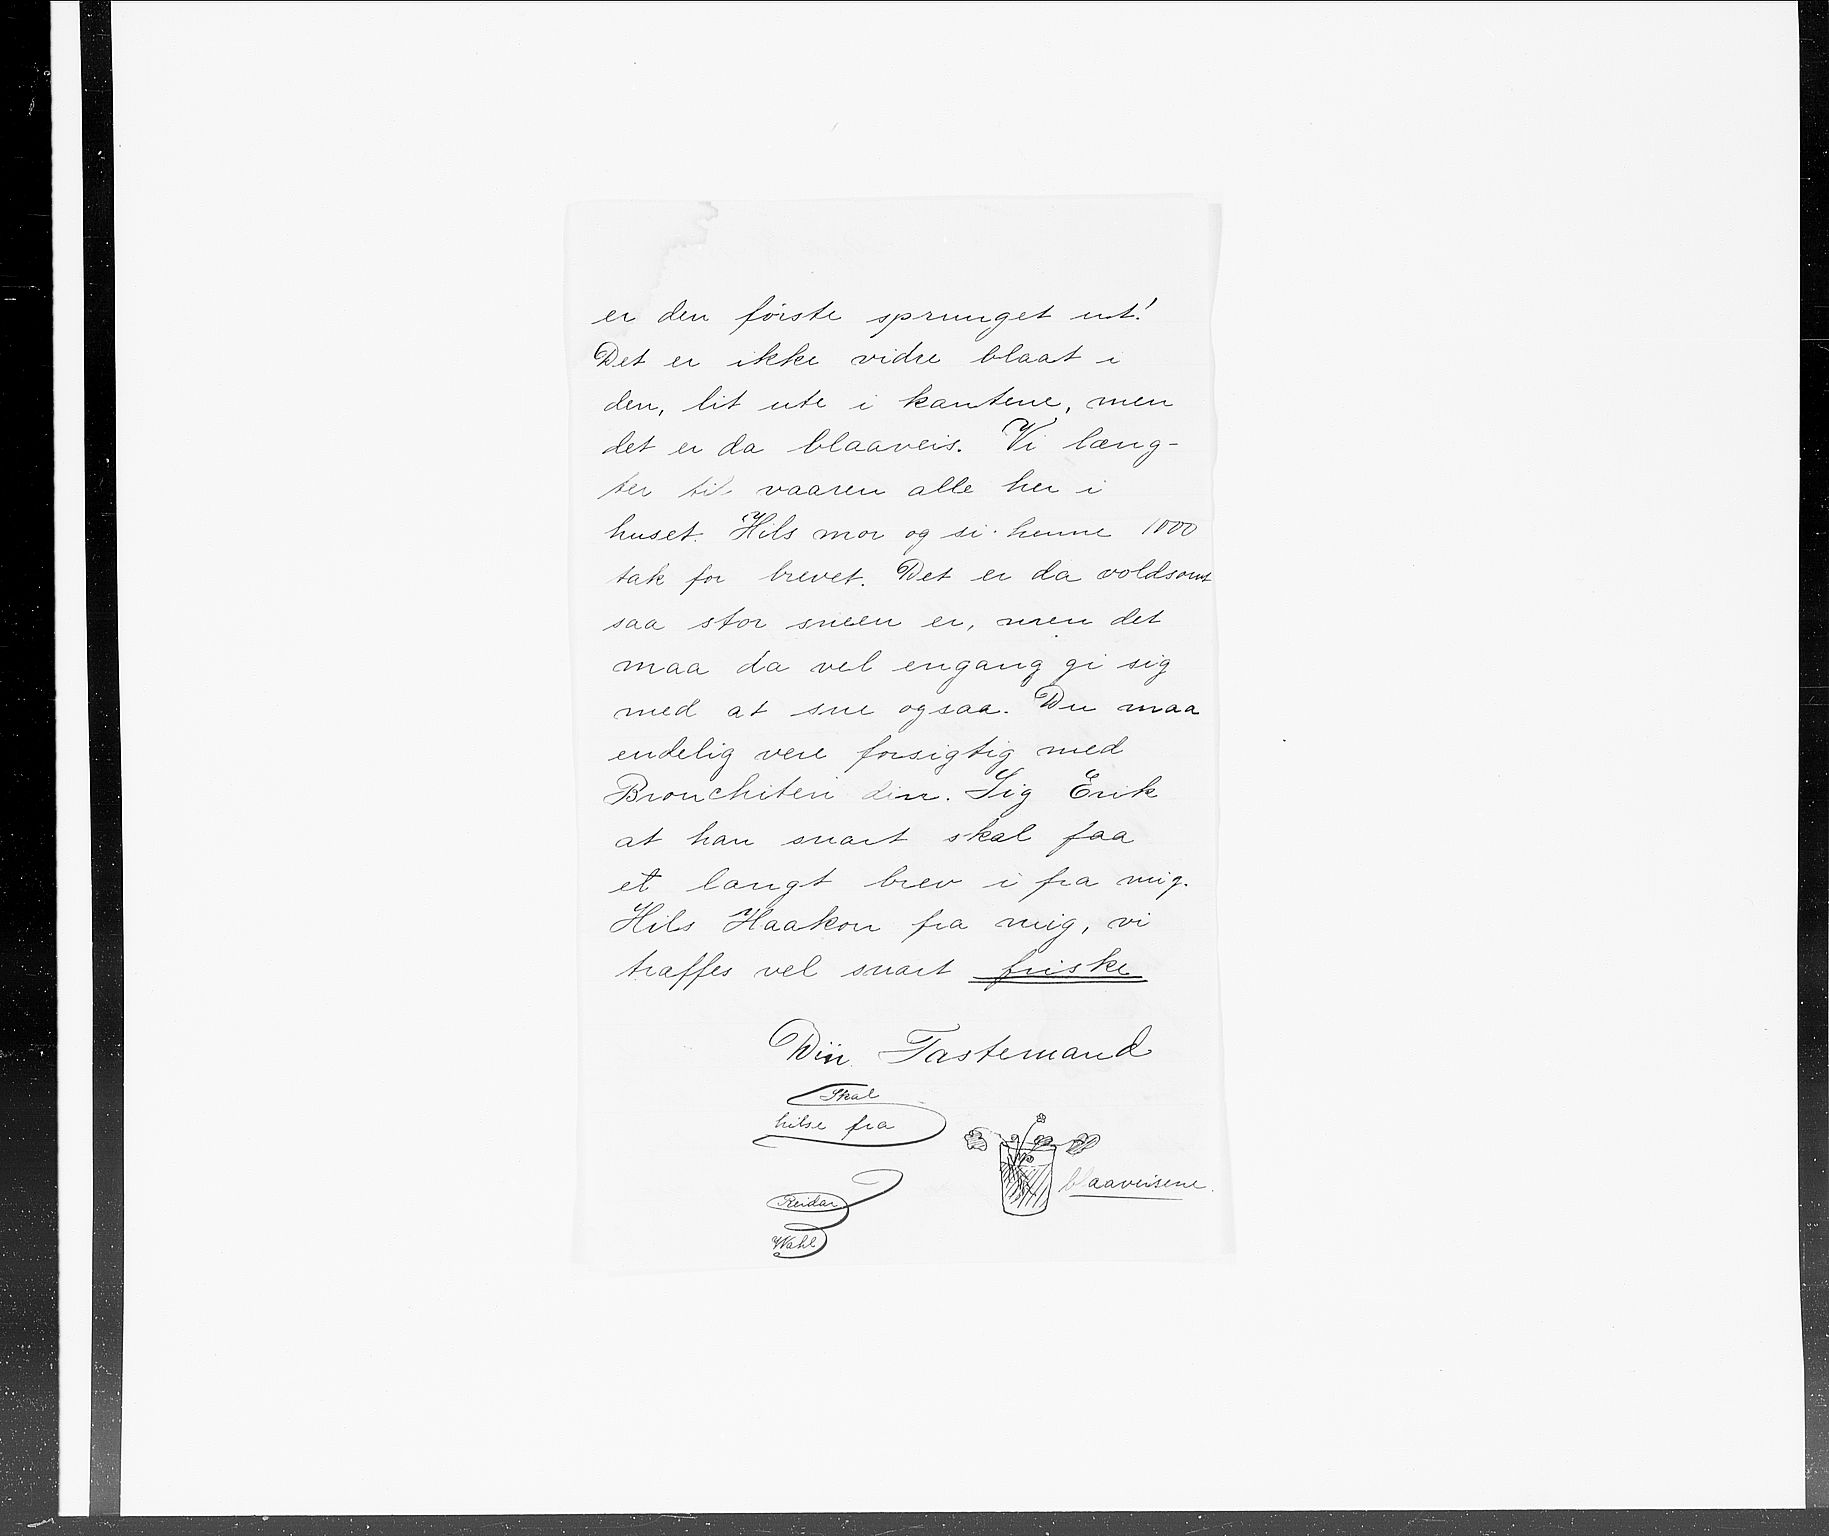 er den første sprunget ut!
Det er ikke vidre blaat i
den, lit ute i kantene, men
det er da blaaveis. Vi læng-
ter til vaaren alle her i
huset. Hils mor og si henne 1000
tak for brevet. Det er da voldsomt
saa stor sneen er, men det
maa da vel engang gi sig
med at sne ogsaa. Du maa
endelig være forsigtig med
Bronchiten din. Sig Erik
at han snart skal faa
et langt brev i fra mig.
Hils Haakon fra mig, vi
træffes vel snart friske
Din Tastemand
Skal
hilse fra
Reidar
Wahl
blaaveisene.